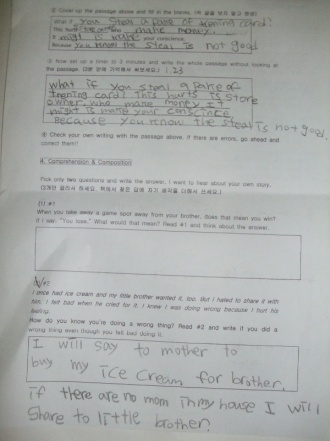 ② Cover up the passage above and fill in the blanks. (위 글을 보지 않고 완성)
What if you steal a pake of traning card?
This hurts store who make money.
It might is make your conscience.
Because you know the steal is not good
③ Now set up a timer to 3 minutes and write the whole passage without looking at
the passage. 1, 23
what if you steal a pake of
traning card? This hurts is store
owner who make money. It
might is make your conscince
Because you know the steal is not good.
④ Check your own writing with the passage above. If there are errors, go ahead and
correct them!!
A. Comprehension & Composition
Pick only two questions and write the answer. I want to hear about your own story.
#1
When you take a game spot away from your brother, does that mean you win?
If I say: "You lose." What would that mean? Read #1 and think about the answer.
#2
I once had ice cream and my little brother wanted it, too. But I hated to share it with
him. I felt bad when he cried for it. I knew I was doing wrong because I hurt his
feeling.
How do you know you're doing a wrong thing? Read #2 and write if you did a
wrong thing even though you felt bad doing it.
I will say to mother to
buy my ice cream for brother.
if there are no mom in my house I will
share to little brother.